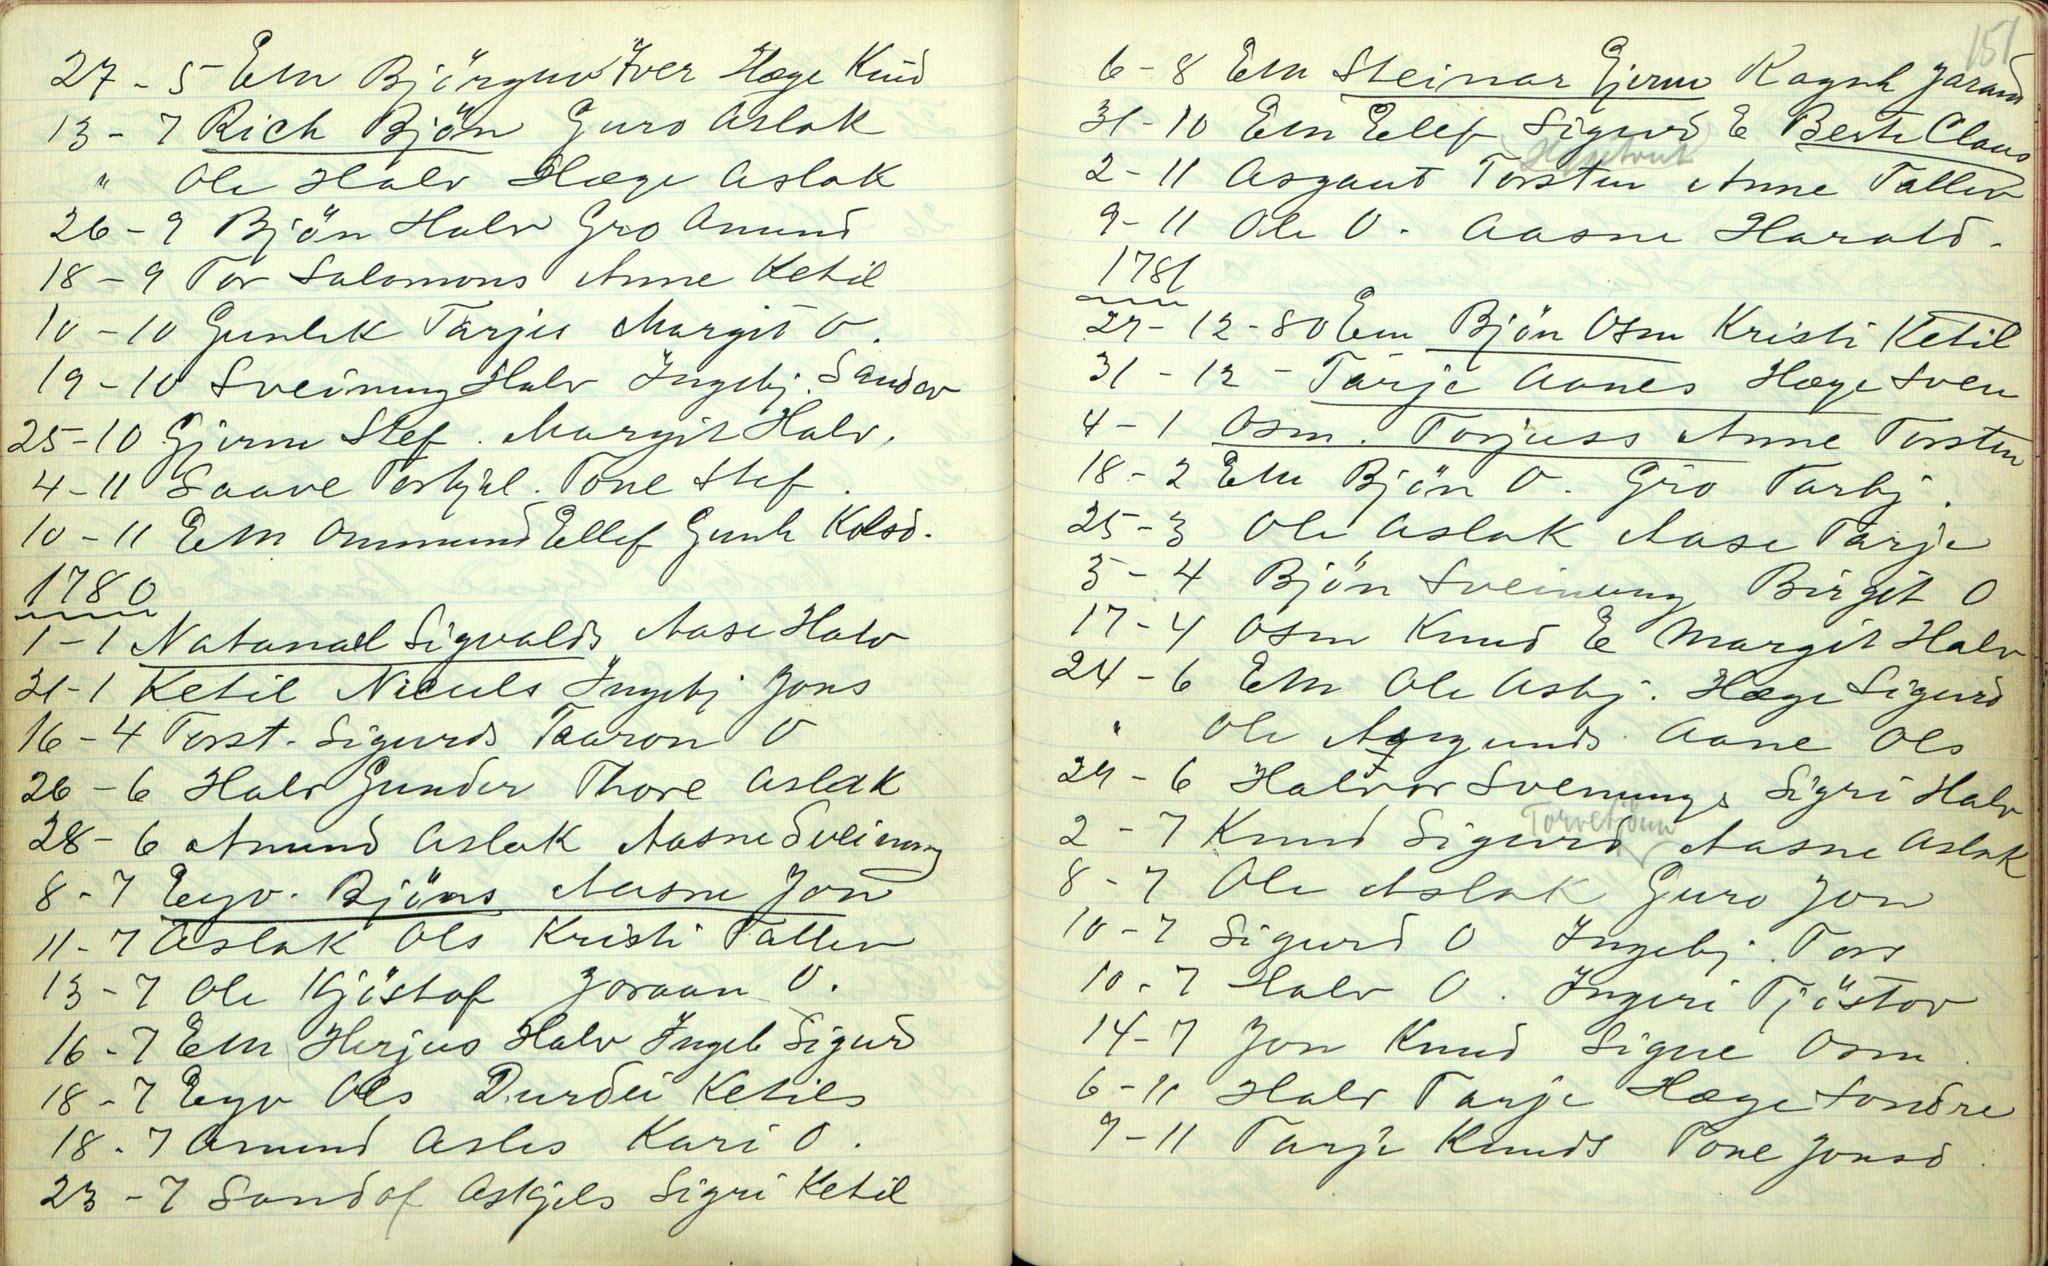 27 - 5 Em Björguv Iver Hæge Knud
13 - 7 Rich Bjön Guro Aslak
" Ole Halv Hæge Aslak
26 - 9 Bjön Halv Gro Amund
18 - 9 Tor Salomons Anne Ketil
10 - 10 Gunlek Tarjei Margit O.
19 - 10 Sveinung Halv Ingebj. Sandov
25 - 10 Gjerm Stef. Margit Halv.
4 - 11 Saave Torkjel. Tone Stef.
10 - 11 Em Ommund Ellef Gunh Kolsd.
1780
1 - 1 Natanael Sigvalds Aase Halv
31 - 1 Ketil Nicols Ingebj Jons
16 - 4 Torst. Sigurds Taaron O
26 - 6 Halv Gunder Thore Aslak
28 - 6 Amund Aslak Aasne Sveinung
8 - 7 Eyv. Bjöns Aasne Jon
11 - 7 Aslak Ols Kristi Tallev
13 - 7 Ole Kjöstof Joraan O.
16 - 7 Em Herjus Halv Ingeb Sigurd
18 - 7 Eyv Ols Durdei Ketils
18 - 7 Amund Asles Kari O.
23 - 7 Sandof Askjels Sigri Ketil
151
6 - 8 Em Steinar Gjerm Ragnh Jarand
31 - 10 Em Elef Sigurd E Berte Claus
2 - 11 Asgaut Torsten Anne Tallev
9 - 11 Ole O. Aasne Harald.
1781
27 - 12 - 80 Em Bjön Osm Kristi Ketil
31 - 12 - Tarje Aanes Hæge Sven
4 - 1 Osm. Torjuss Anne Torsten
18 - 2 Em Bjön O. Gro Tarbj.
25 - 3 Ole Aslak Aase Tarje
5 - 4 Bjön Sveinung Birgit O
17 - 4 Osm Knud E Margit Halv
24 - 6 Em Ole Asbj. Hæge Sigurd
" Ole Aagunds Aane Ols
29 - 6 Halvor Svenungs Sigri Halv
Torvetjönn
2 - 7 Knud Sigurd Aasne Aslak
8 - 7 Ole Aslak Guro Jon
10 - 7 Sigurd O Ingebj. Tors
10 - 7 Halv O. Ingeri Tjöstov
14 - 7 Jon Knud Signe Osm.
6 - 11 Halv Tarje Hæge Sondre
9 - 11 Tarje Knuds Tone Jonsd.